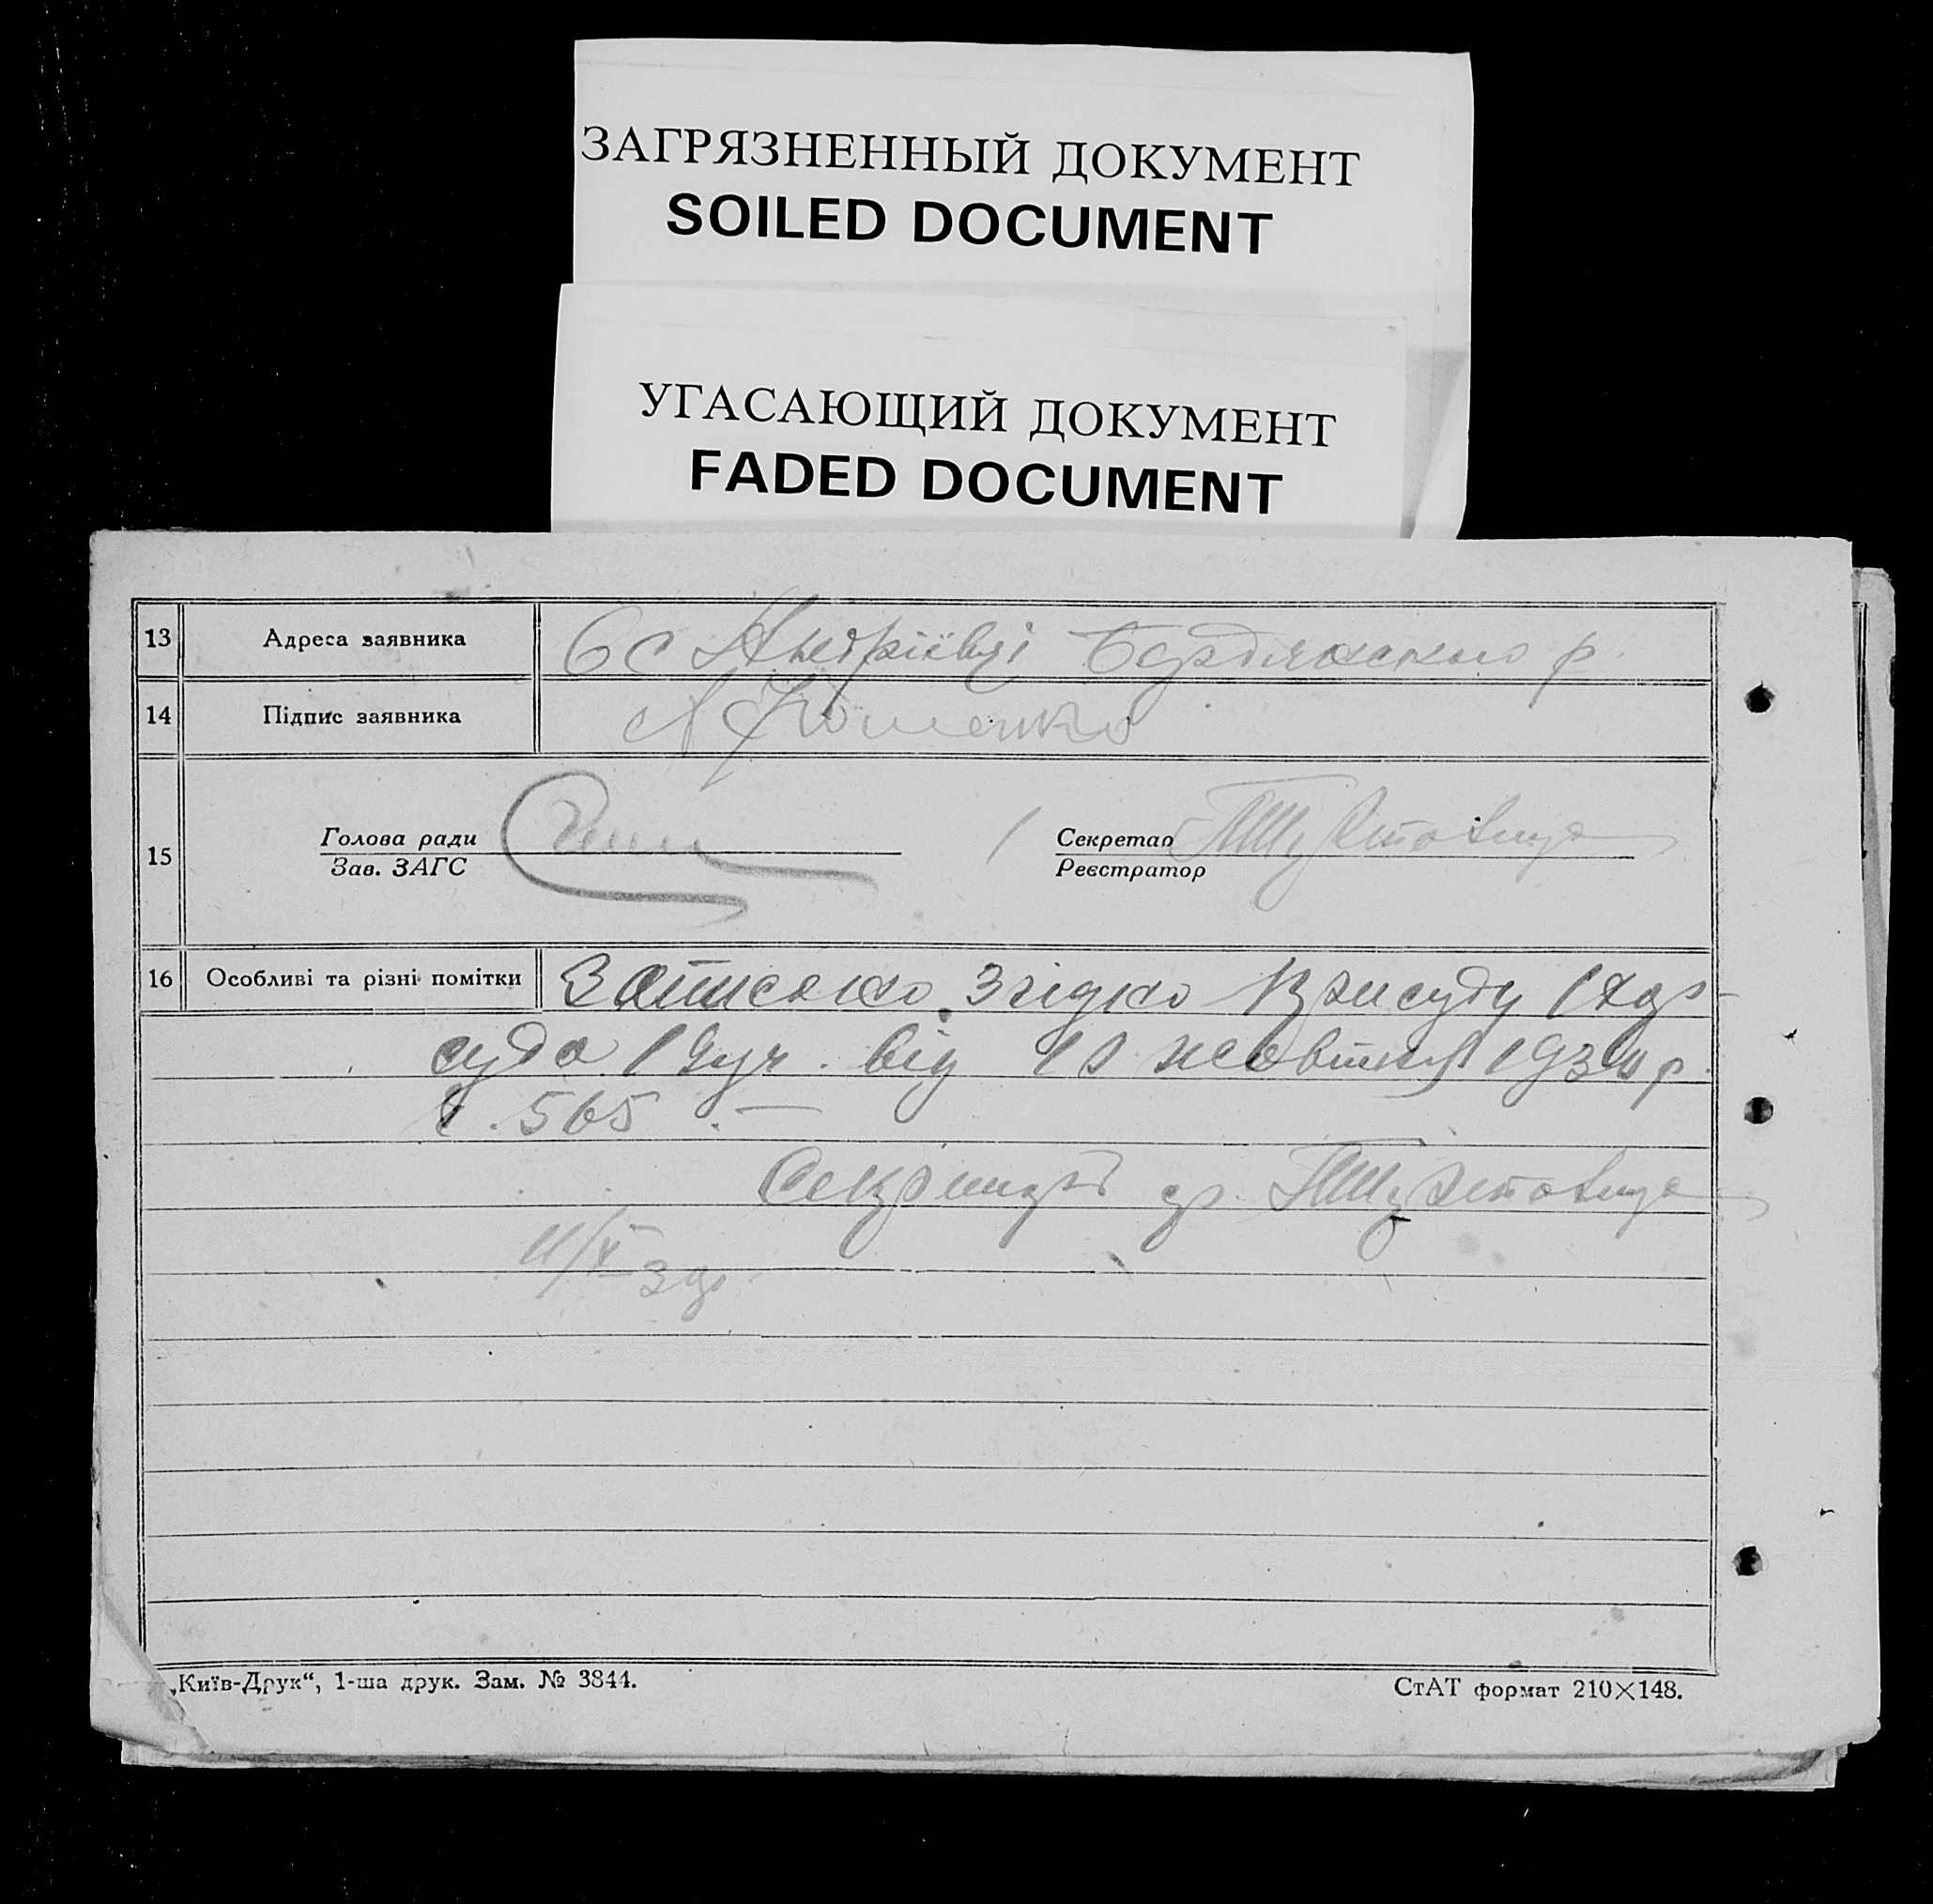 ЗАГРЯЗНЕННЫЙ ДОКУМЕНТ
SOILED DOCUMENT
УГАСАЮЩИЙ ДОКУМЕНТ
FADED DOCUMENT
13 Адреса заявника с Андріївці Бердянського р.
14 Підпис заявника
15 Голова ради Секретар
Зав. ЗАГС Реєстратор
16 Особливі та різні помітки Записано згідно присуду
суда від жовтня 1934 р.
565. —
Секретар
11/X 34р.
„Київ-Друк“, 1-ша друк. Зам. № 3844.
СтАТ формат 210×148.